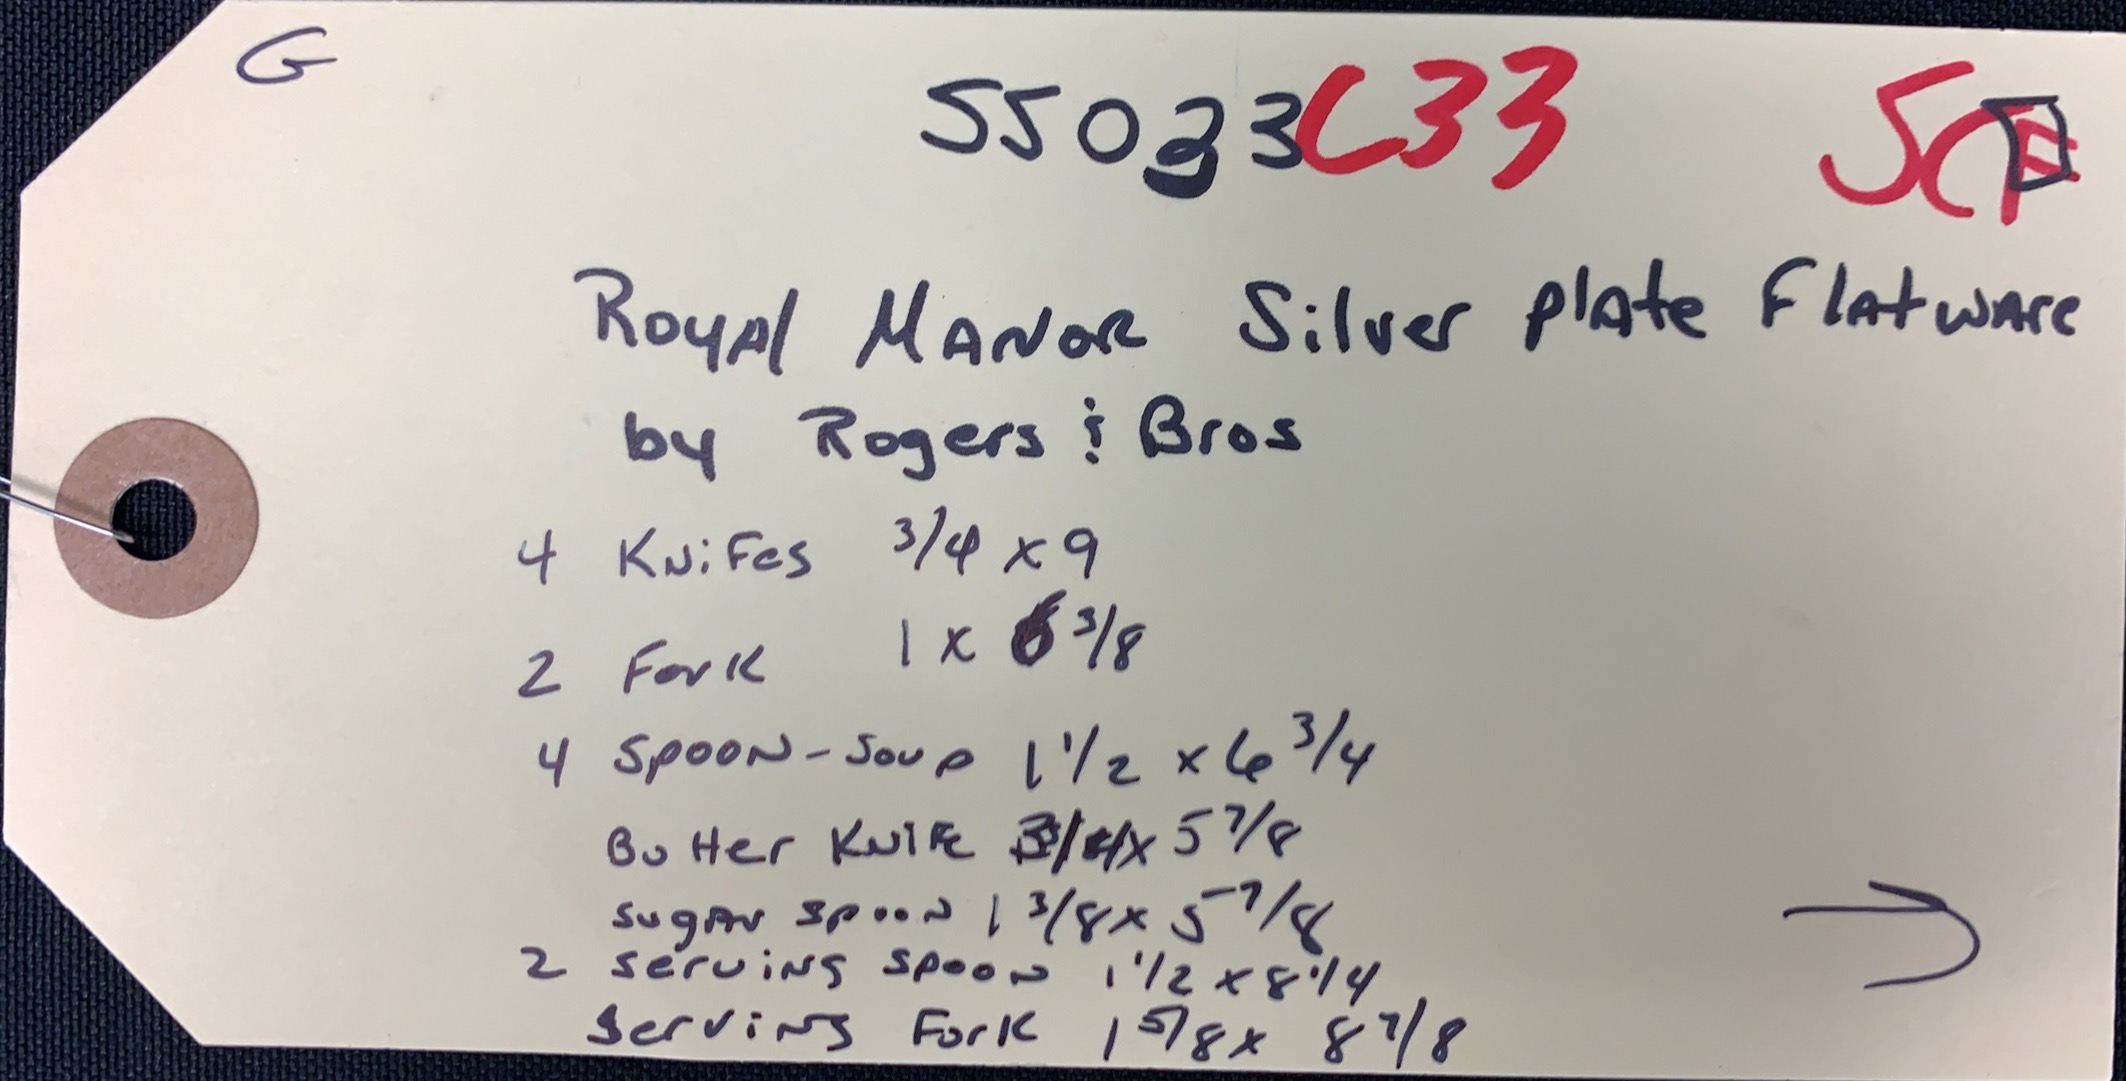 G
55033C33 SC
Royal Manor Silver plate Flatware
by Rogers & Bros
4 Knifes 3/4 x 9
2 Fork 1 x 6 3/8
4 Spoon-Soup 1 1/2 x 6 3/4
Butter Knife 3/4 x 5 7/8
sugar spoon 1 3/8 x 5 7/8
2 serving spoon 1 1/2 x 8 1/4
Serving Fork 1 5/8 x 8 7/8